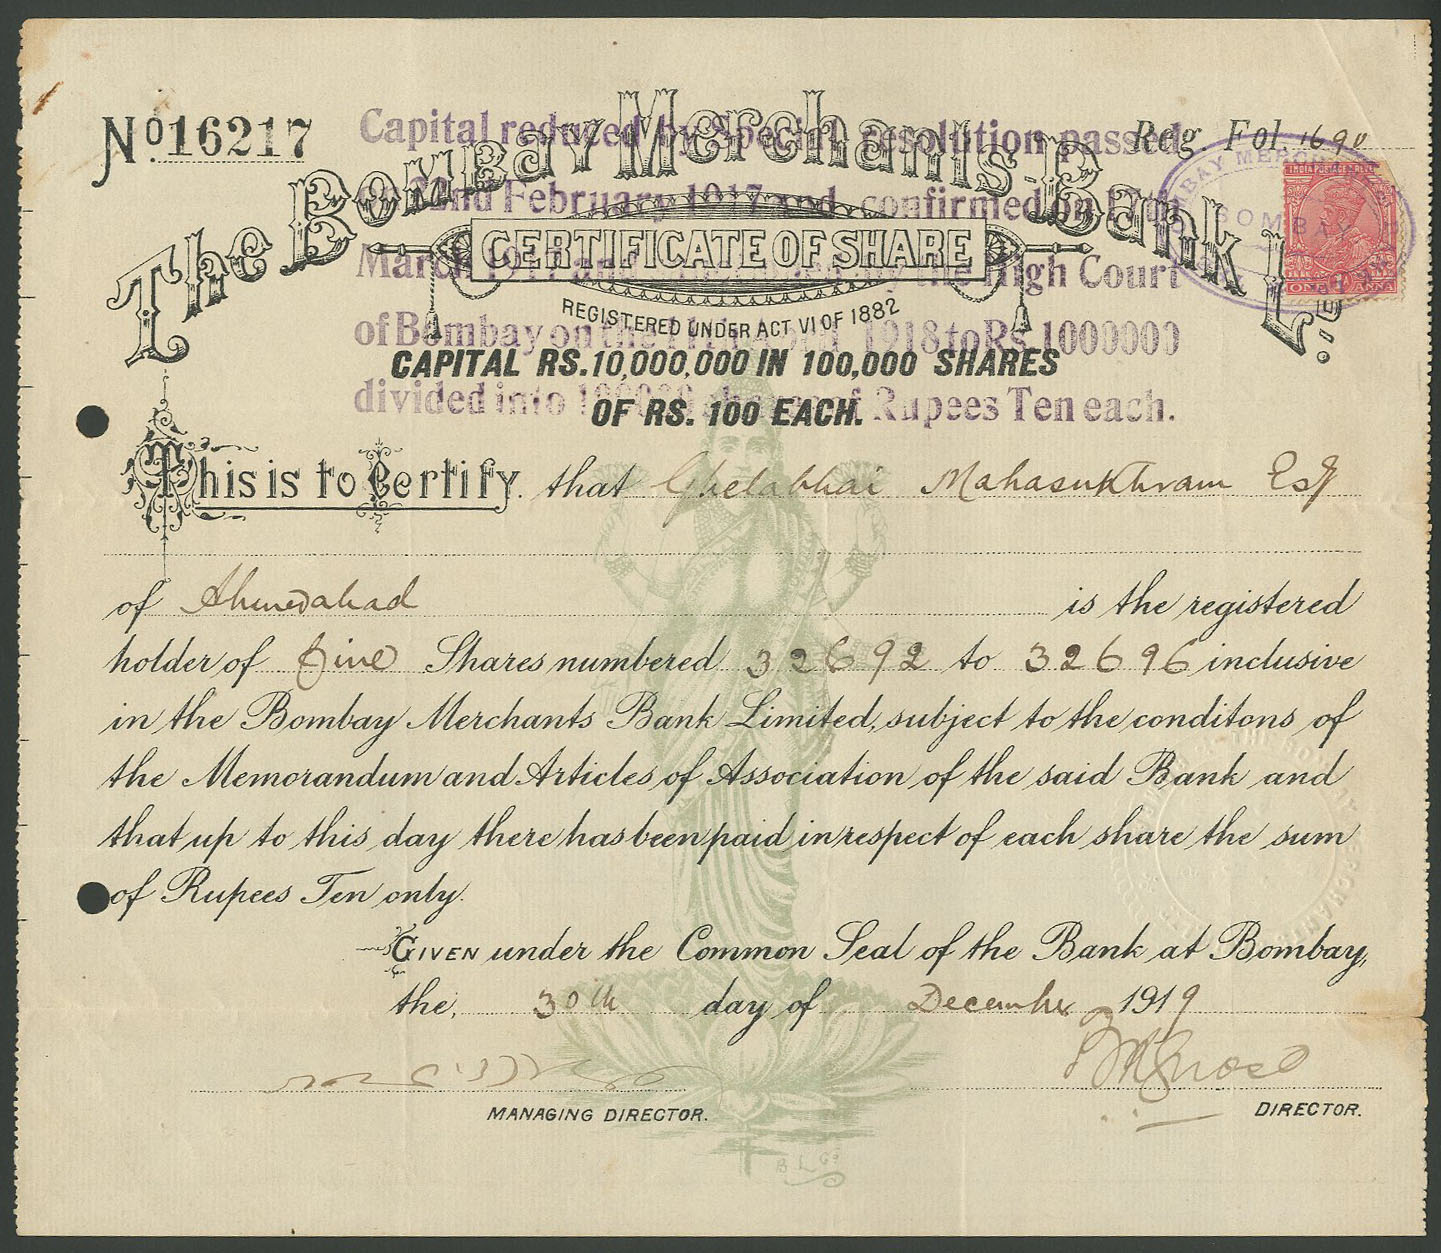 No 16217
Reg. Fol. 1690
The Bombay Merchants Bank Ltd.
Capital reduced by Special resolution passed
on 22nd February 1917 and confirmed on
March 1917 and by the High Court
of Bombay on the 1918 to Rs. 1000000
divided into 100000 shares of Rupees Ten each.
BOMBAY MERCHANTS
BOMBAY
INDIA POSTAGE
ONE ANNA
CERTIFICATE OF SHARE
REGISTERED UNDER ACT VI OF 1882
CAPITAL RS. 10,000,000 IN 100,000 SHARES
OF RS. 100 EACH.
This is to Certify that Ghelabhai Mahasukhram Esq
of Ahmedabad is the registered
holder of five Shares numbered 32692 to 32696 inclusive
in the Bombay Merchants Bank Limited, subject to the conditons of
the Memorandum and Articles of Association of the said Bank and
that up to this day there has been paid in respect of each share the sum
of Rupees Ten only.
GIVEN under the Common Seal of the Bank at Bombay,
the, 30th day of December 1919
MANAGING DIRECTOR.
DIRECTOR.